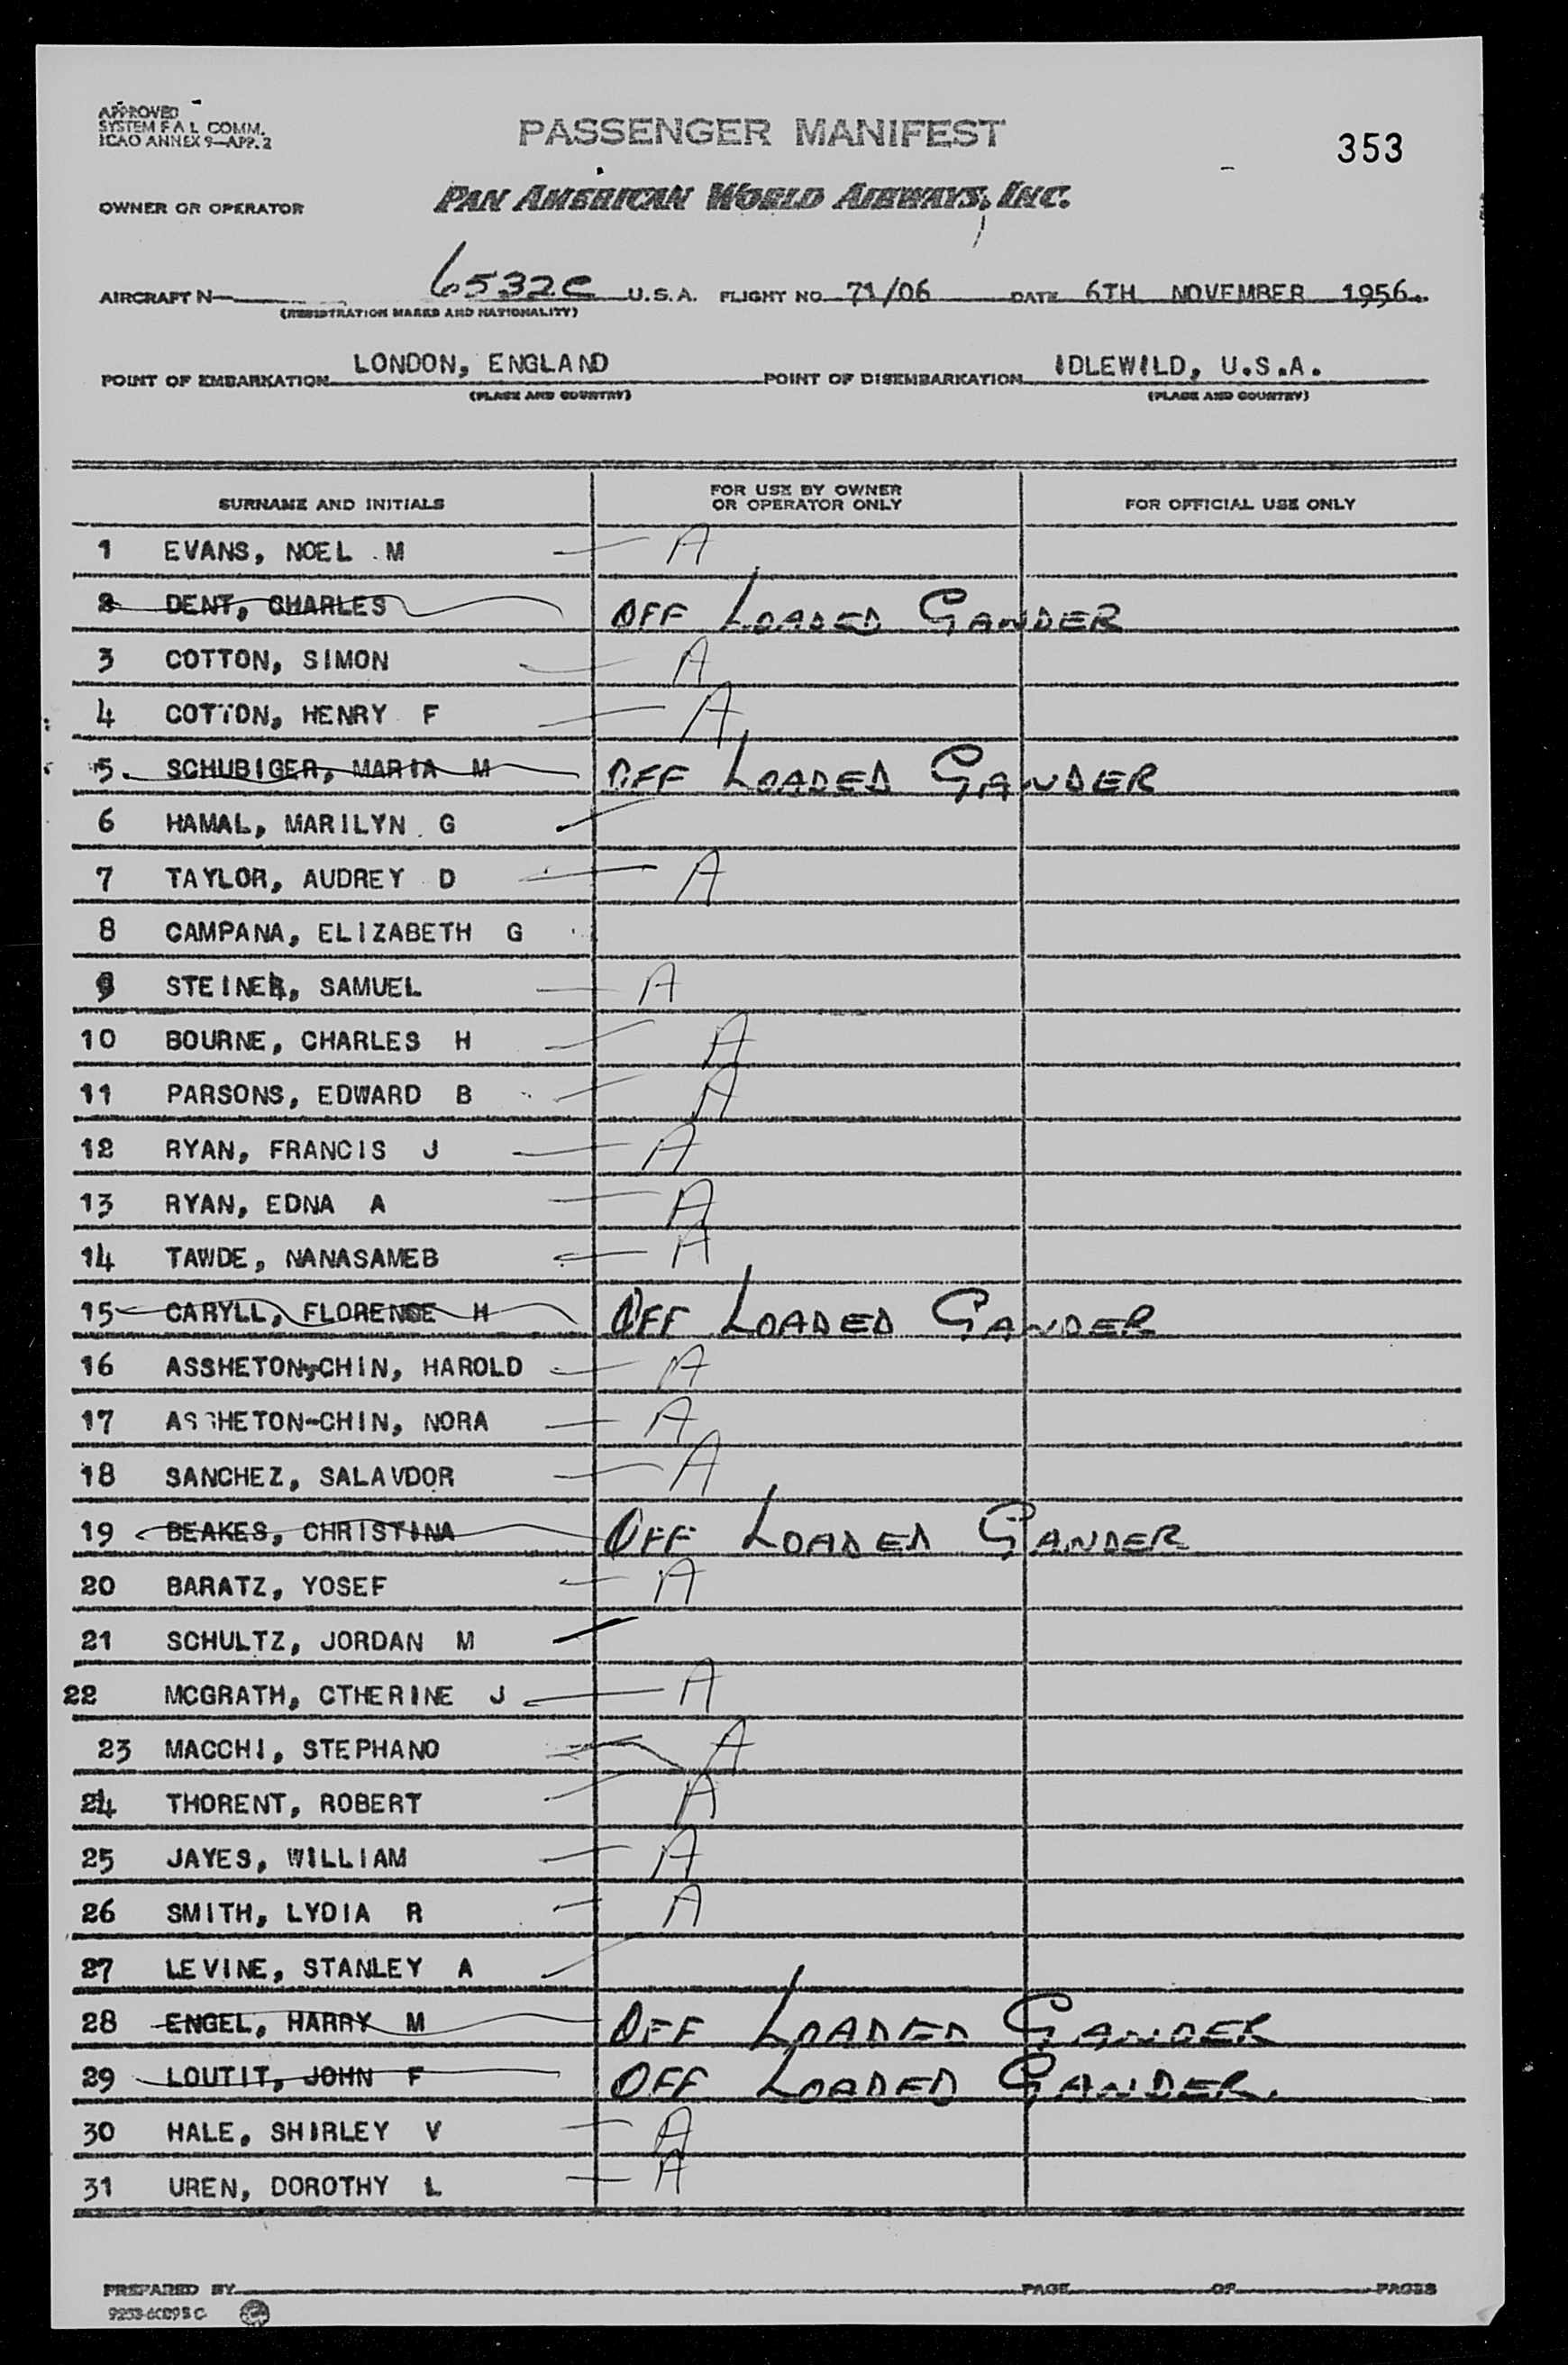 APPROVED
SYSTEM F A L COMM.
ICAO ANNEX 9—APP. 2
PASSENGER MANIFEST
353
OWNER OR OPERATOR PAN AMERICAN WORLD AIRWAYS, INC.
AIRCRAFT N— 6532C U.S.A. FLIGHT NO. 71/06 DATE 6TH NOVEMBER 1956.
(REGISTRATION MARKS AND NATIONALITY)
POINT OF EMBARKATION LONDON, ENGLAND POINT OF DISEMBARKATION IDLEWILD, U.S.A.
(PLACE AND COUNTRY) (PLACE AND COUNTRY)
SURNAME AND INITIALS FOR USE BY OWNER OR OPERATOR ONLY FOR OFFICIAL USE ONLY
1 EVANS, NOEL M A
2 DENT, CHARLES OFF LOADED GANDER
3 COTTON, SIMON A
4 COTTON, HENRY F A
5. SCHUBIGER, MARIA M OFF LOADED GANDER
6 HAMAL, MARILYN G
7 TAYLOR, AUDREY D A
8 CAMPANA, ELIZABETH G
9 STEINER, SAMUEL A
10 BOURNE, CHARLES H A
11 PARSONS, EDWARD B A
12 RYAN, FRANCIS J A
13 RYAN, EDNA A A
14 TAWDE, NANASAMEB A
15 CARYLL, FLORENCE H OFF LOADED GANDER
16 ASSHETON-CHIN, HAROLD A
17 ASSHETON-CHIN, NORA A
18 SANCHEZ, SALAVDOR A
19 BEAKES, CHRISTINA OFF LOADED GANDER
20 BARATZ, YOSEF A
21 SCHULTZ, JORDAN M
22 MCGRATH, CTHERINE J A
23 MACCHI, STEPHANO A
24 THORENT, ROBERT A
25 JAYES, WILLIAM A
26 SMITH, LYDIA R A
27 LEVINE, STANLEY A
28 ENGEL, HARRY M OFF LOADED GANDER
29 LOUTIT, JOHN F OFF LOADED GANDER.
30 HALE, SHIRLEY V A
31 UREN, DOROTHY L A
PREPARED BY PAGE OF PAGES